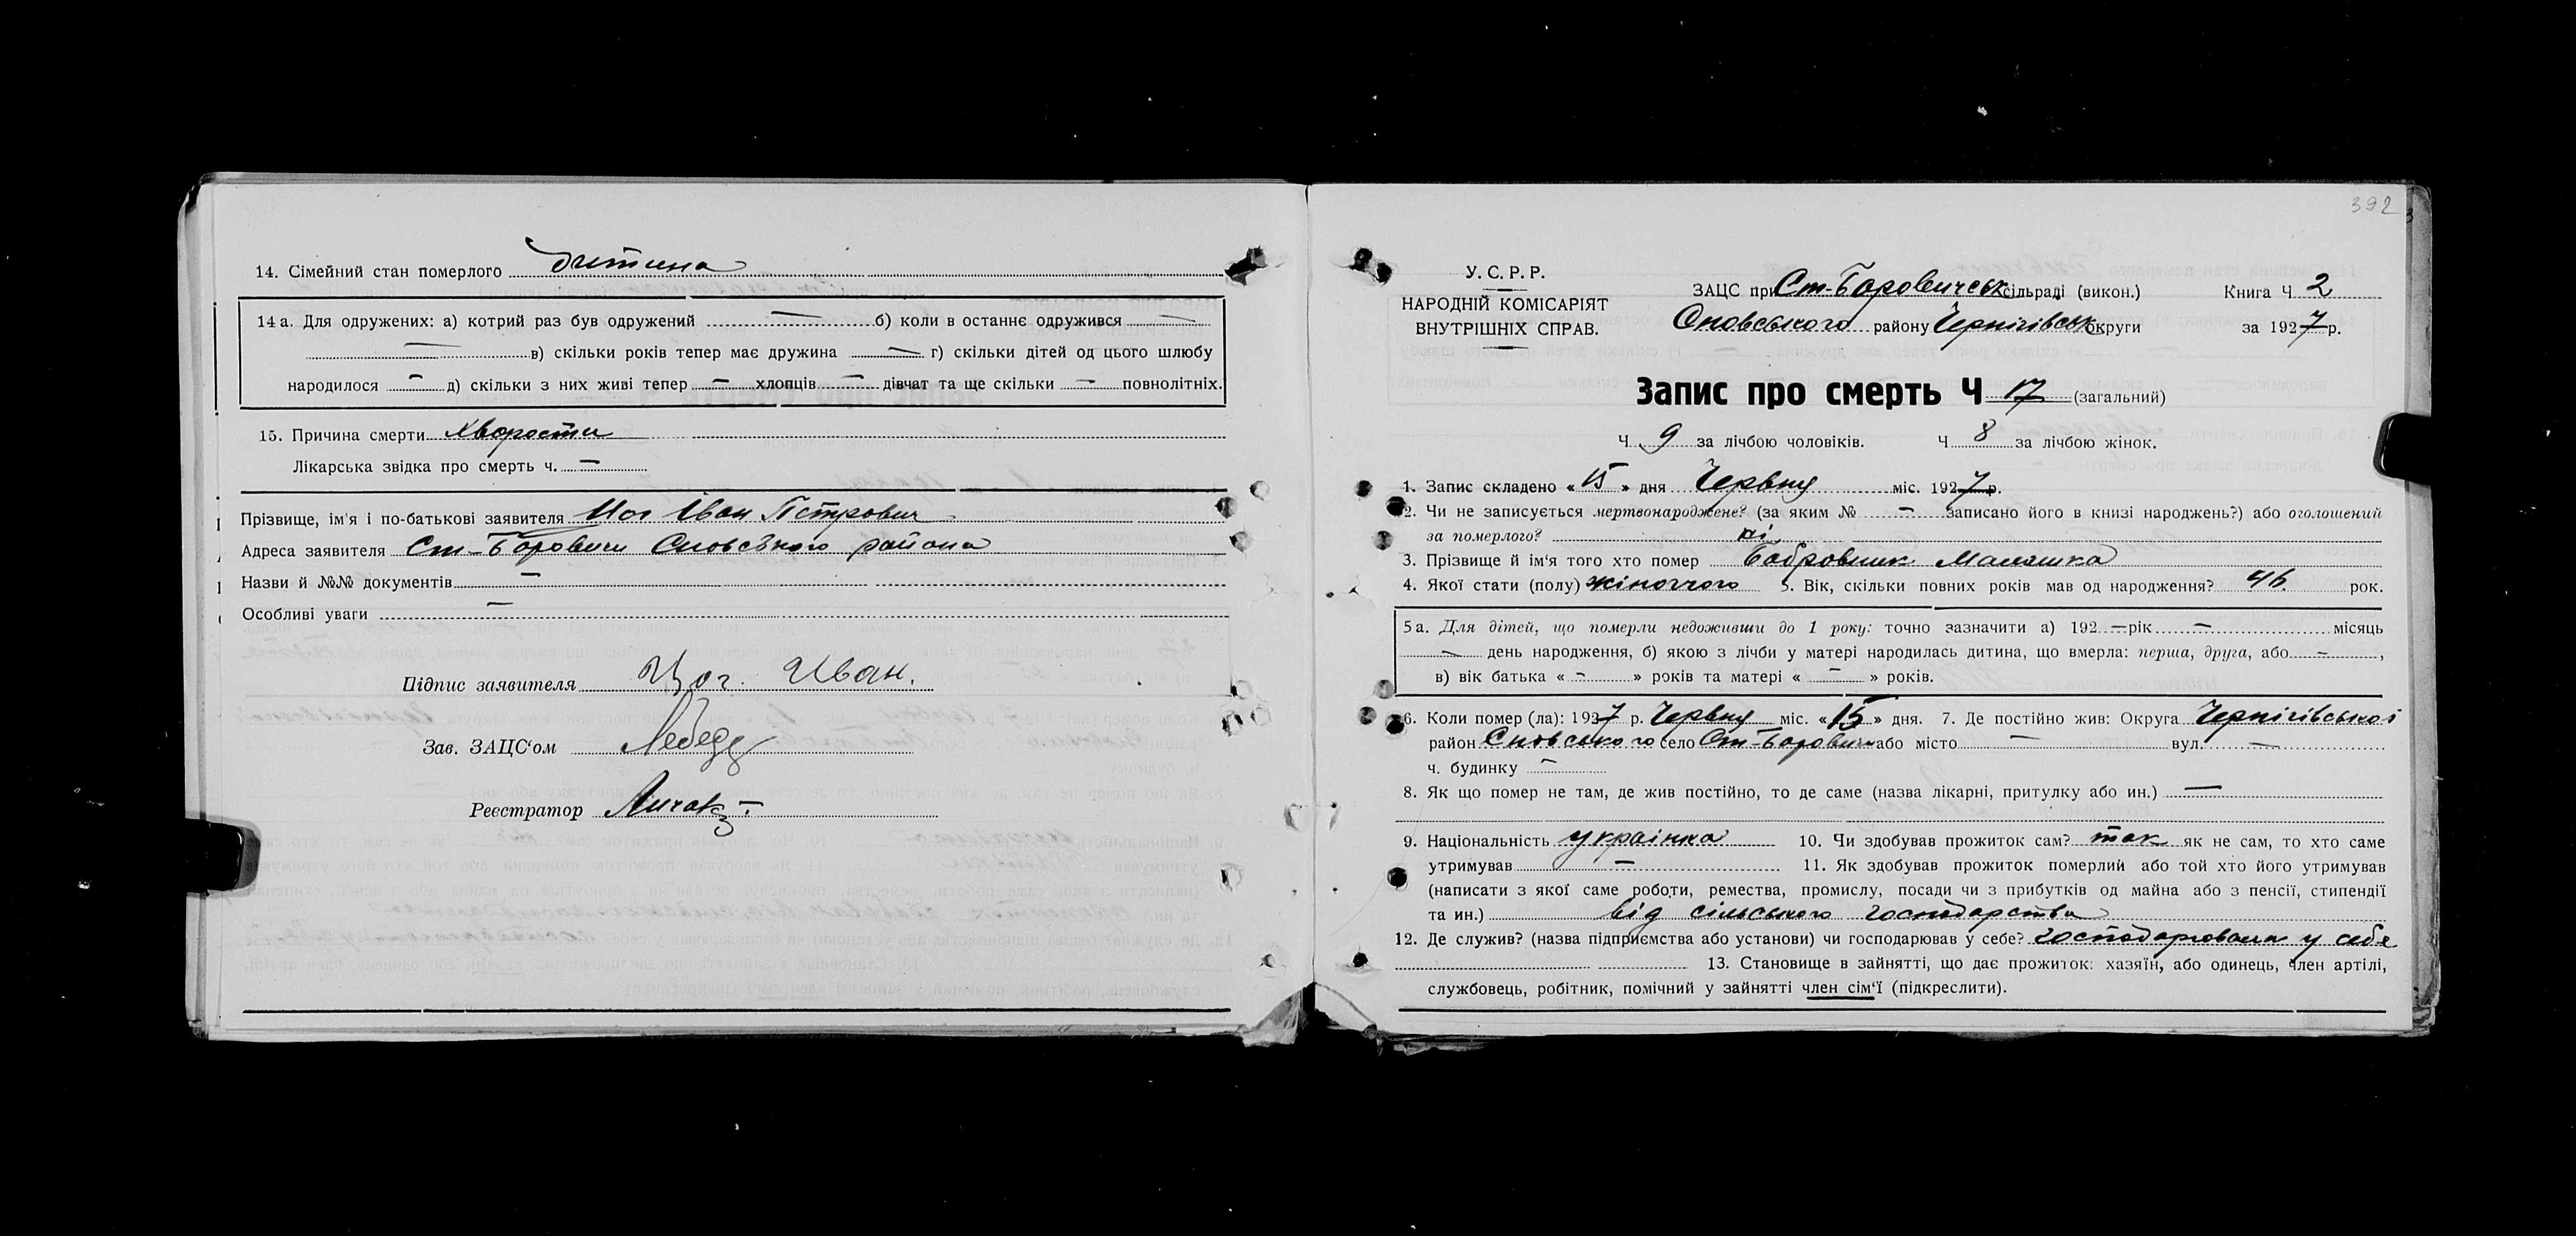 14. Сімейний стан померлого дитина
14а. Для одружених: а) котрий раз був одружений — б) коли в останнє одружився —
— в) скільки років тепер має дружина — г) скільки дітей од цього шлюбу
народилося — д) скільки з них живі тепер — хлопців — дівчат та ще скільки — повнолітніх.
15. Причина смерти Хворости
Лікарська звідка про смерть ч. —
Прізвище, ім'я і по-батькові заявителя Іван Петрович
Адреса заявителя Ст-Боровичи Сновського района
Назви й №№ документів —
Особливі уваги —
Підпис заявителя Иван.
Зав. ЗАЦС'ом
Реєстратор
392
У. С. Р. Р.
НАРОДНІЙ КОМІСАРІЯТ
ВНУТРІШНІХ СПРАВ.
ЗАЦС при Ст-Боровичськ сільраді (викон.) Книга Ч 2
Сновського району Чернігівськ округи за 1927 р.
Запис про смерть Ч 17 (загальний)
Ч 9 за лічбою чоловіків. Ч 8 за лічбою жінок.
1. Запис складено « 15 » дня Червню міс. 1927 р.
2. Чи не записується мертвонароджене? (за яким № — записано його в книзі народжень?) або оголошений
за померлого? ні
3. Прізвище й ім'я того хто помер Бобровник Малашка
4. Якої стати (полу) жіночого 5. Вік, скільки повних років мав од народження? 46 рок.
5а. Для дітей, що померли недоживши до 1 року: точно зазначити а) 192 — рік — місяць
— день народження, б) якою з лічби у матері народилась дитина, що вмерла: перша, друга, або — ,
в) вік батька « — » років та матері « — » років.
6. Коли помер (ла): 1927 р. Червню міс. « 15 » дня. 7. Де постійно жив: Округа Чернігівської
район Сновського село Ст-Боровичи або місто — вул. —
ч. будинку —
8. Як що помер не там, де жив постійно, то де саме (назва лікарні, притулку або ин.) —
9. Національність українка 10. Чи здобував прожиток сам? так як не сам, то хто саме
утримував — 11. Як здобував прожиток померлий або той хто його утримував
(написати з якої саме роботи, ремества, промислу, посади чи з прибутків од майна або з пенсії, стипендії
та ин.) від сільського господарства
12. Де служив? (назва підприємства або установи) чи господарював у себе? господарювала у себе
13. Становище в зайнятті, що дає прожиток: хазяїн, або одинець, член артілі,
службовець, робітник, помічний у зайнятті член сім'ї (підкреслити).